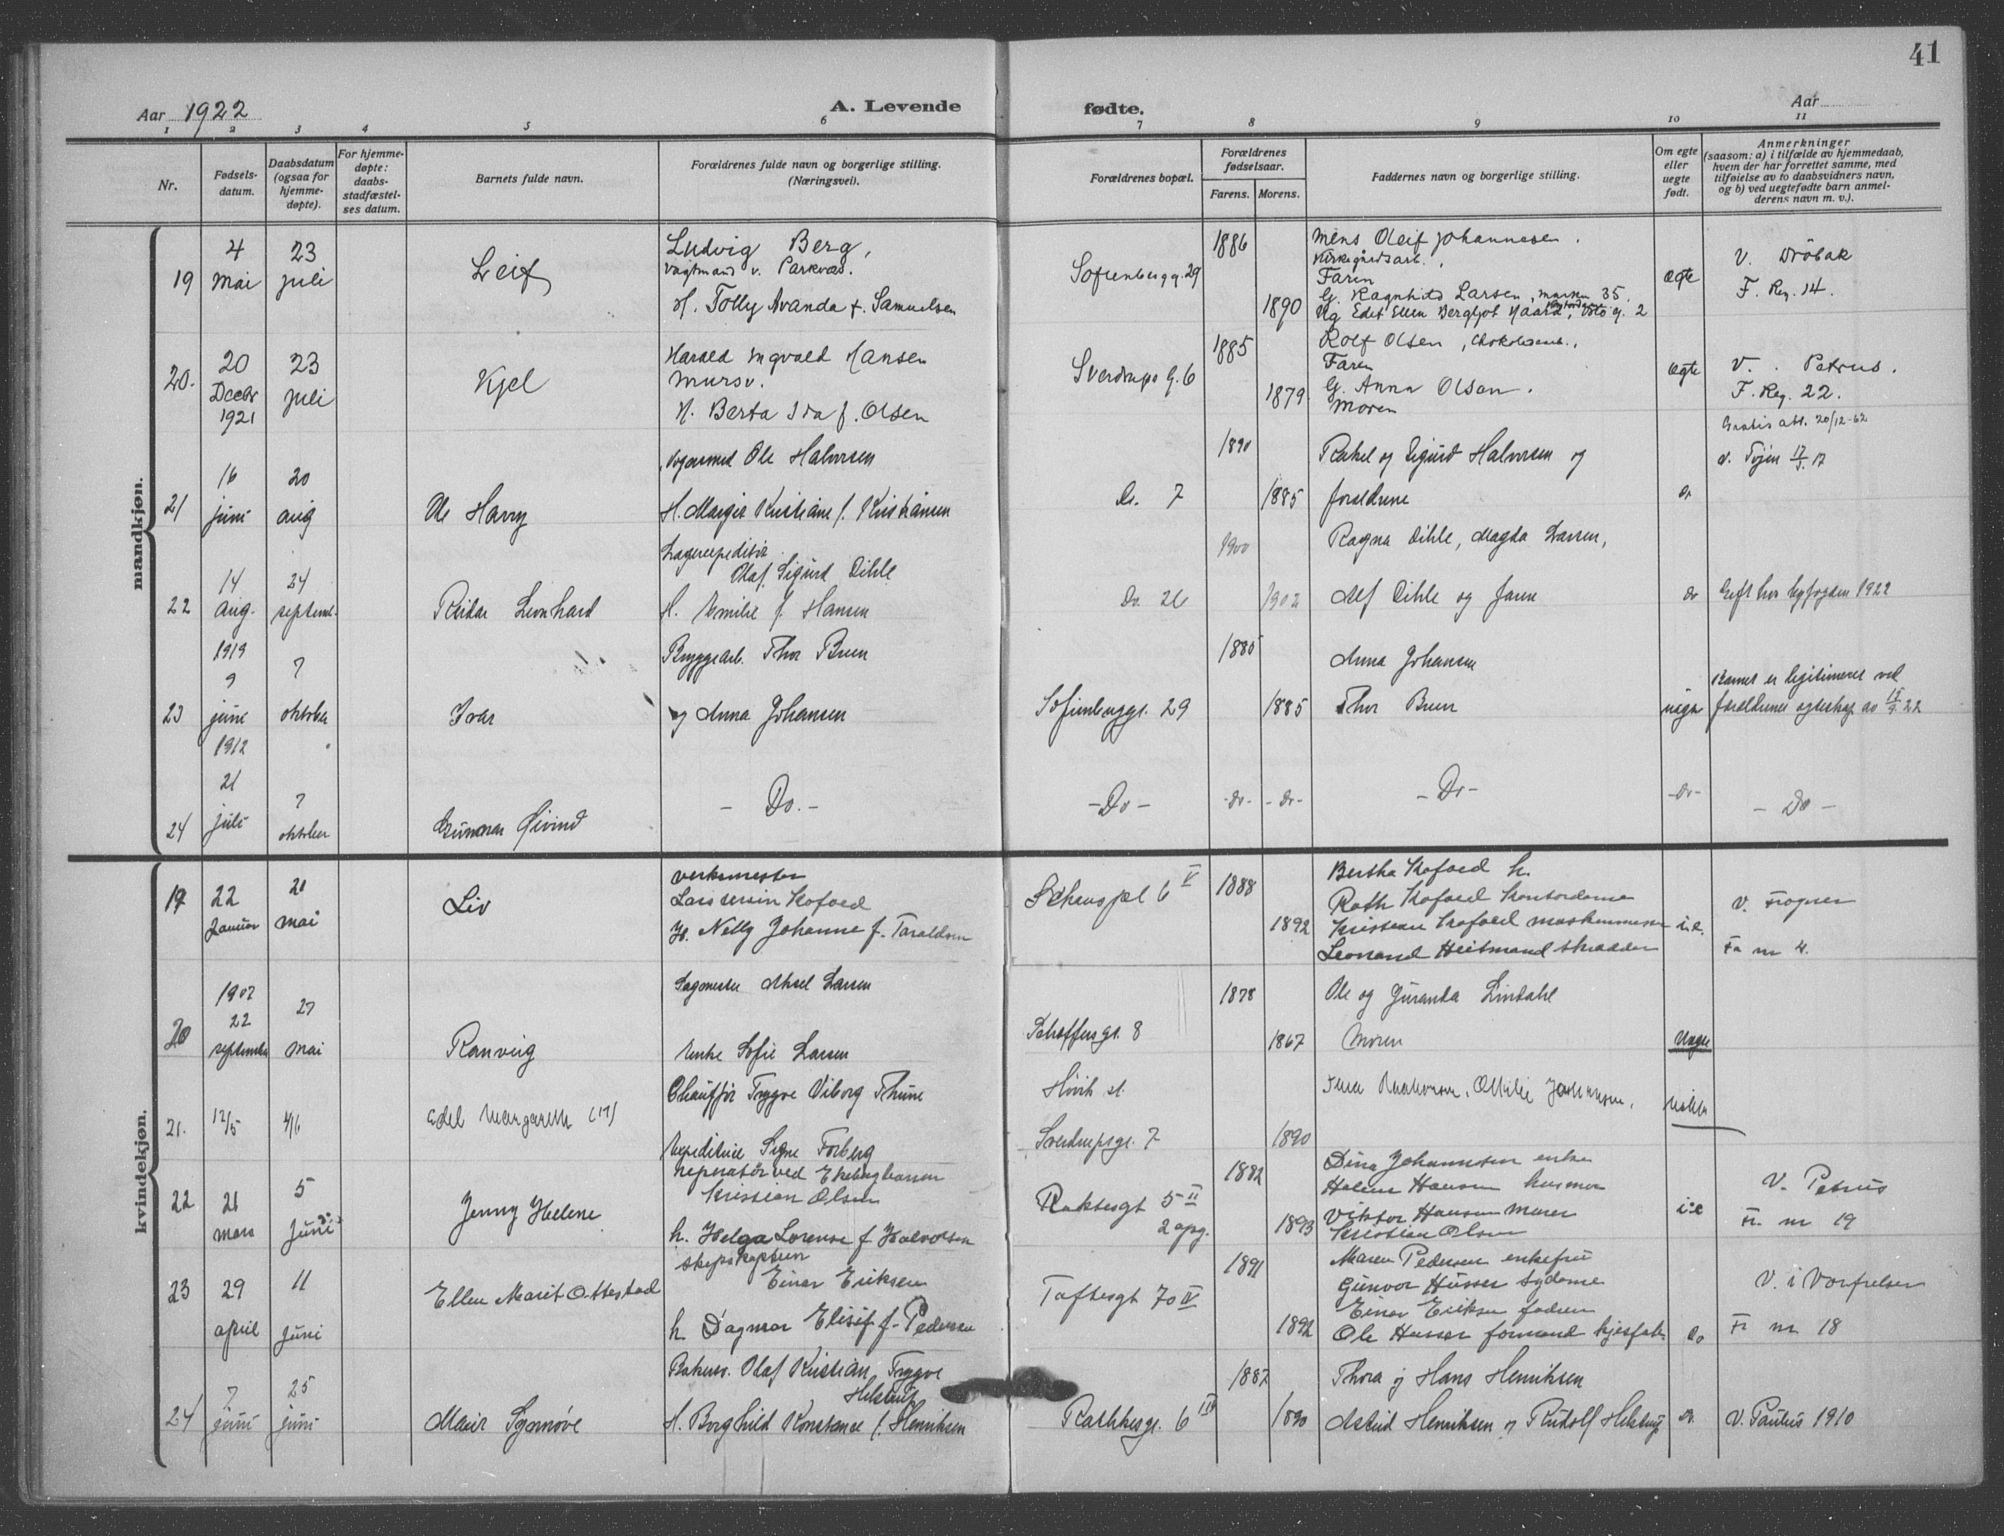 41
Aar 1922
A. Levende
fødte.
Aar
1 2 3 4 5 6 7 8 9 10 11
Nr.
Fødsels-
datum.
Daabsdatum
(ogsaa for
hjemme-
døpte).
For hjemme-
døpte:
daabs-
stadfæstel-
ses datum.
Barnets fulde navn.
Forældrenes fulde navn og borgerlige stilling.
(Næringsvei).
Forældrenes bopæl.
Forældrenes
fødselsaar.
Farens. Morens.
Faddernes navn og borgerlige stilling.
Om egte
eller
uegte
født.
Anmerkninger
(saasom: a) i tilfælde av hjemmedaab,
hvem der har forrettet samme, med
tilføielse av to daabsvidners navn,
og b) ved uegtefødte barn anmel-
derens navn m. v.).
mandkjøn.
19
4
mai
23
juli
Leif
Ludvig Berg,
Vagtmand v. Parkvæs.
H. Tolly Avanda f. Samuelsen
Sofienbergg. 29
1886
1890
Mens Oleif Johannesen.
Kirkegårdsarb.,
Faren
G. Ragnhild Larsen, Marken 35.
Pig Edet Ellen Bergljot Haard, Oslo g. 2
egte
V. Drøbak
F. Reg. 14.
20.
20
Decbr
1921
23
juli
Kjel
Harald Ingvald Hansen
Mursv.
H. Berta Ida f. Olsen
Sverdrups G. 6
1885
1879
Rolf Olsen, Chokoladearb.,
Faren
G. Anna Olsen.
Moren
egte
V. Petrus.
F. Reg. 22.
Gratis att. 20/12-62
21
16
juni
20
aug
Ole Harry
Vognsmed Ole Halvorsen
H. Margit Kristiane f. Kristiansen
Do. 7
1890
1885
Rakel og Sigurd Halvorsen og
forældrene
Do
v. Tøjen 17/5. 17
22
14
aug.
24
septemb.
Reidar Leonhard
Lagerexpeditør
Olaf Sigurd Dihle
H. Emilie f. Hansen
Do. 26
1900
1902
Ragna Dihle, Magda Larsen,
Alf Dihle og faren
Do
Gift hos byfogden 1922
23
1919
9
juni
7
oktober
Ivar
Bryggearb. Thor Bruen
og Anna Johansen
Sofienberggt. 29
1885
1885
Anna Johansen
Thor Bruen
uegte
Barnet er legitimeret ved
forældrenes egteskap av 15/9. 22
24
1912
21
juli
7
oktober
Gunnar Øivind
- Do. -
- Do -
- Do - - Do -
- Do -
- Do -
- Do -
kvindekjøn.
19
22
Januar
21
mai
Liv
Verksmester
Lars Kofoed
H. Nelly Johanne f. Taraldsen
Schouspl 6 V
1888
1892
Bertha Kofoed h.
Ruth Kofoed Kontordame
Kristian Kofoed maskinmester
Leonard Heitmand skrædder
i.e.
V. Frogner
Fr nr 4.
20
1907
22
september
27
mai
Ranveig
Sagmester Aksel Larsen
Enke Sofie Larsen
Schøffersgt. 8
1878
1867
Ole og Guranda Lindahl
Moren
Uegte
21.
12/5
4/6
Edel Margarethe (17)
Chauffør Trygve Viborg Thune
Expeditrice Signe Forberg
Høvik st.
Sverdrupsgt. 7
1890
22
21
mars
5
Juni
Jenny Helene
reperatør ved Ekebergbanen
Kristian Olsen
h. Helga Lorense f Halvorsen
Rathkesgt 5 II
2 opg.
1882
1893
Dina Johannesen enke
Helene Hansen husmor
Viktor Hansen murer
Kristian Olsen
i e
V. Petrus
Fr. nr 19
23
29
april
11
Juni
Ellen Marit Ottestad
skipskaptein
Einar Eriksen
h Dagmar Elisif f. Pedersen
Toftesgt 70 IV
1891
1892
Maren Pedersen enkefru
Gunvor Husser sydame
Einar Eriksen faderen
Ole Husser formand kjeksfab.
Do
V. i Vorfrelser
Fr nr 18
24
7
juni
25
juni
Mair Synnøve
Bakersv. Olaf Kristian Trygve
Helstrup
H. Borghild Konstanse f. Henriksen
Rathkesgt. 6 III
1887
1890
Thora og Hans Henriksen
Astrid Henriksen og Rudolf Helstrup
Do.
V. Paulus 1910